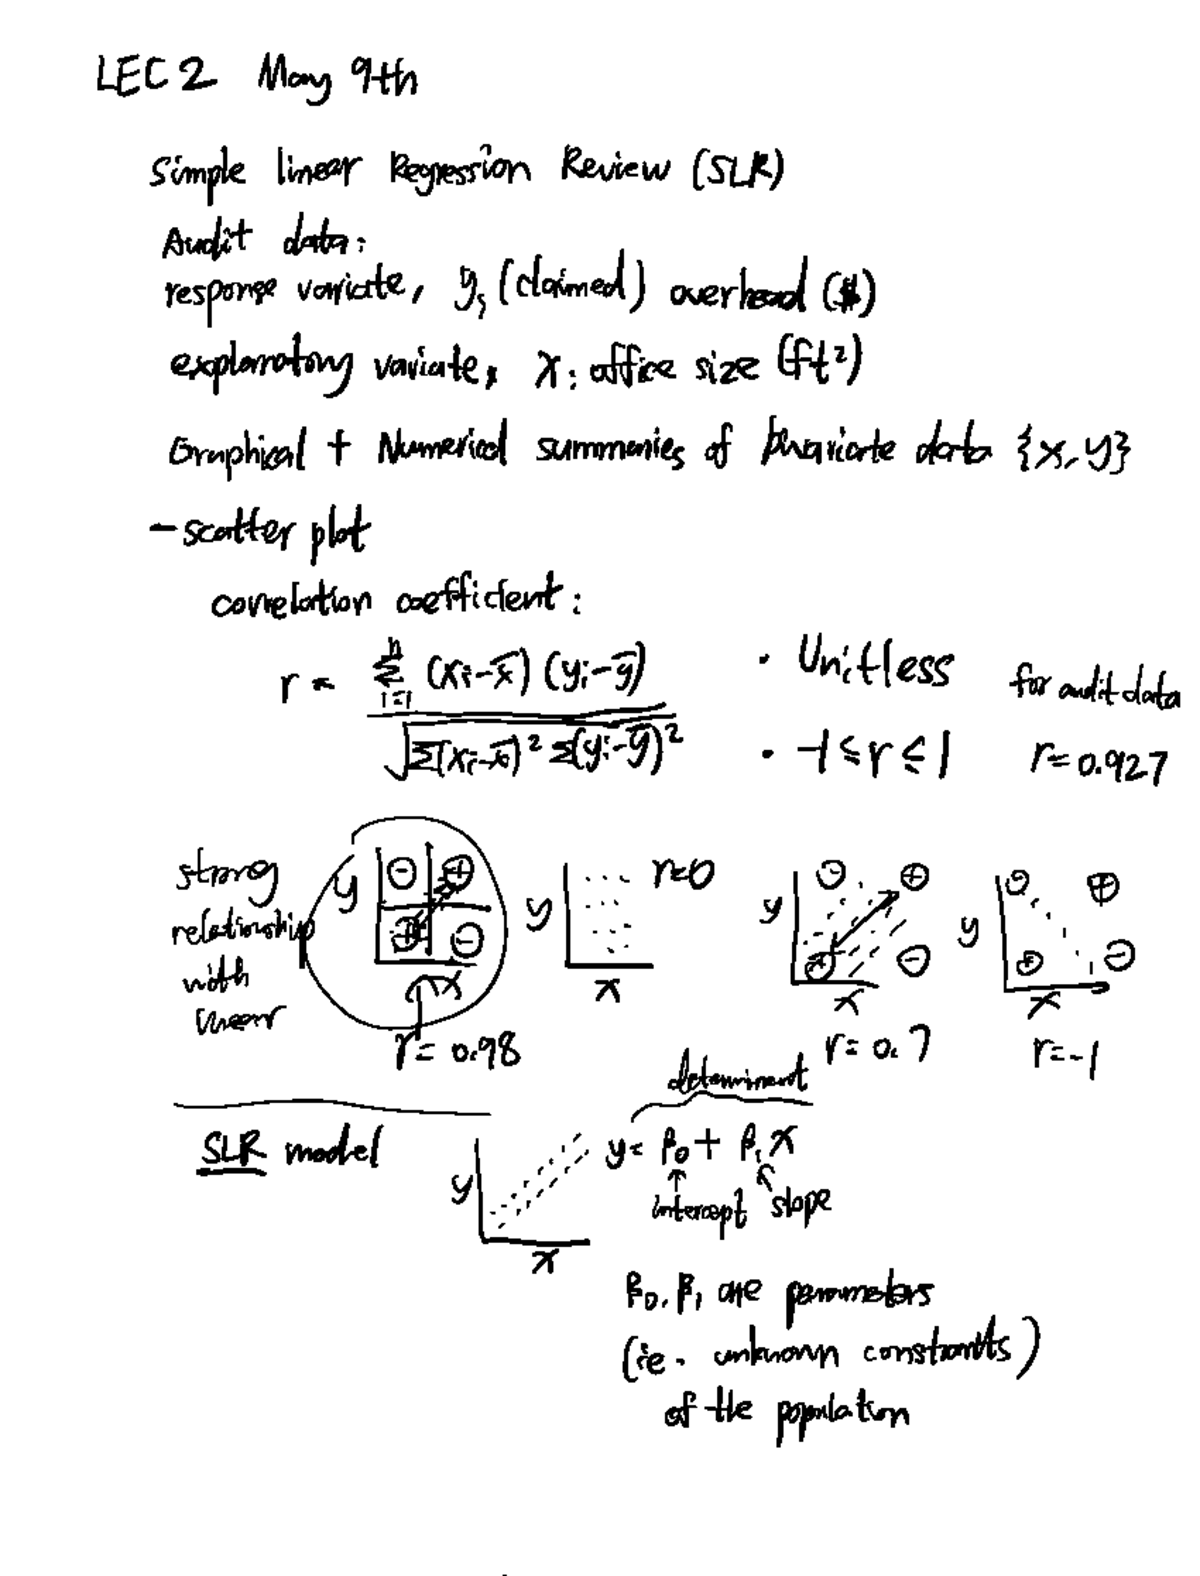 LEC 2 May 9th
Simple linear Regression Review (SLR)
Audit data:
response variate, y; (claimed) overhead ($)
explanatory variate, x: office size (ft²)
Graphical + Numerical summaries of bivariate data {x, y}
- scatter plot
correlation coefficient:
r = \frac{\sum_{i=1}^{n} (x_i - \bar{x})(y_i - \bar{y})}{\sqrt{\sum(x_i - \bar{x})^2 \sum(y_i - \bar{y})^2}}
• Unitless
• -1 ≤ r ≤ 1
for audit data
r = 0.927
strong
relationship
with
linear
y ⊖ ⊕
⊕ ⊖
x
r = 0.98
y
x
r=0
y ⊖ ⊕
⊕ ⊖
x
r = 0.7
y ⊖ ⊕
⊕ ⊖
x
r = -1
SLR model
y
x
determinant
y = β₀ + β₁ x
↑ intercept ↖ slope
β₀, β₁ are parameters
(ie. unknown constants)
of the population